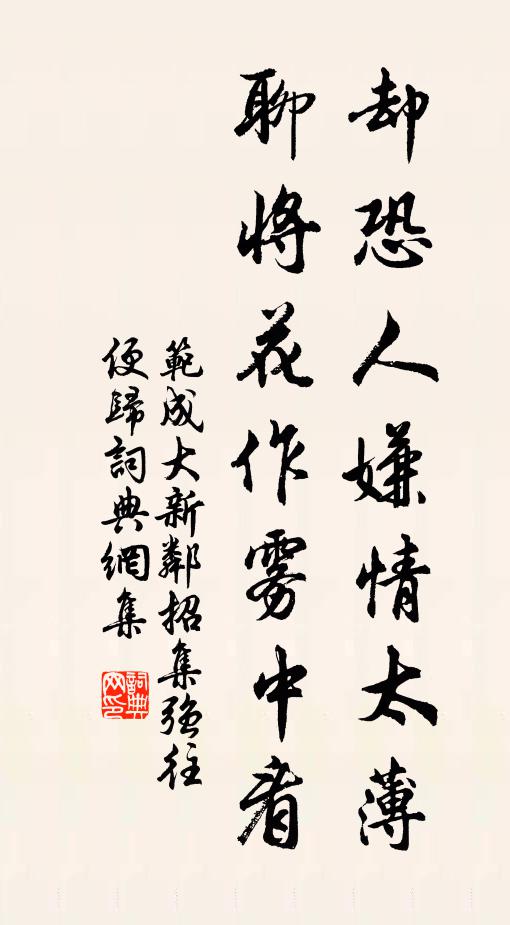 却恐人嫌情太薄
聊將花作雾中看
範成大新鄰招集強往
便歸詞典網集
詞典
网印